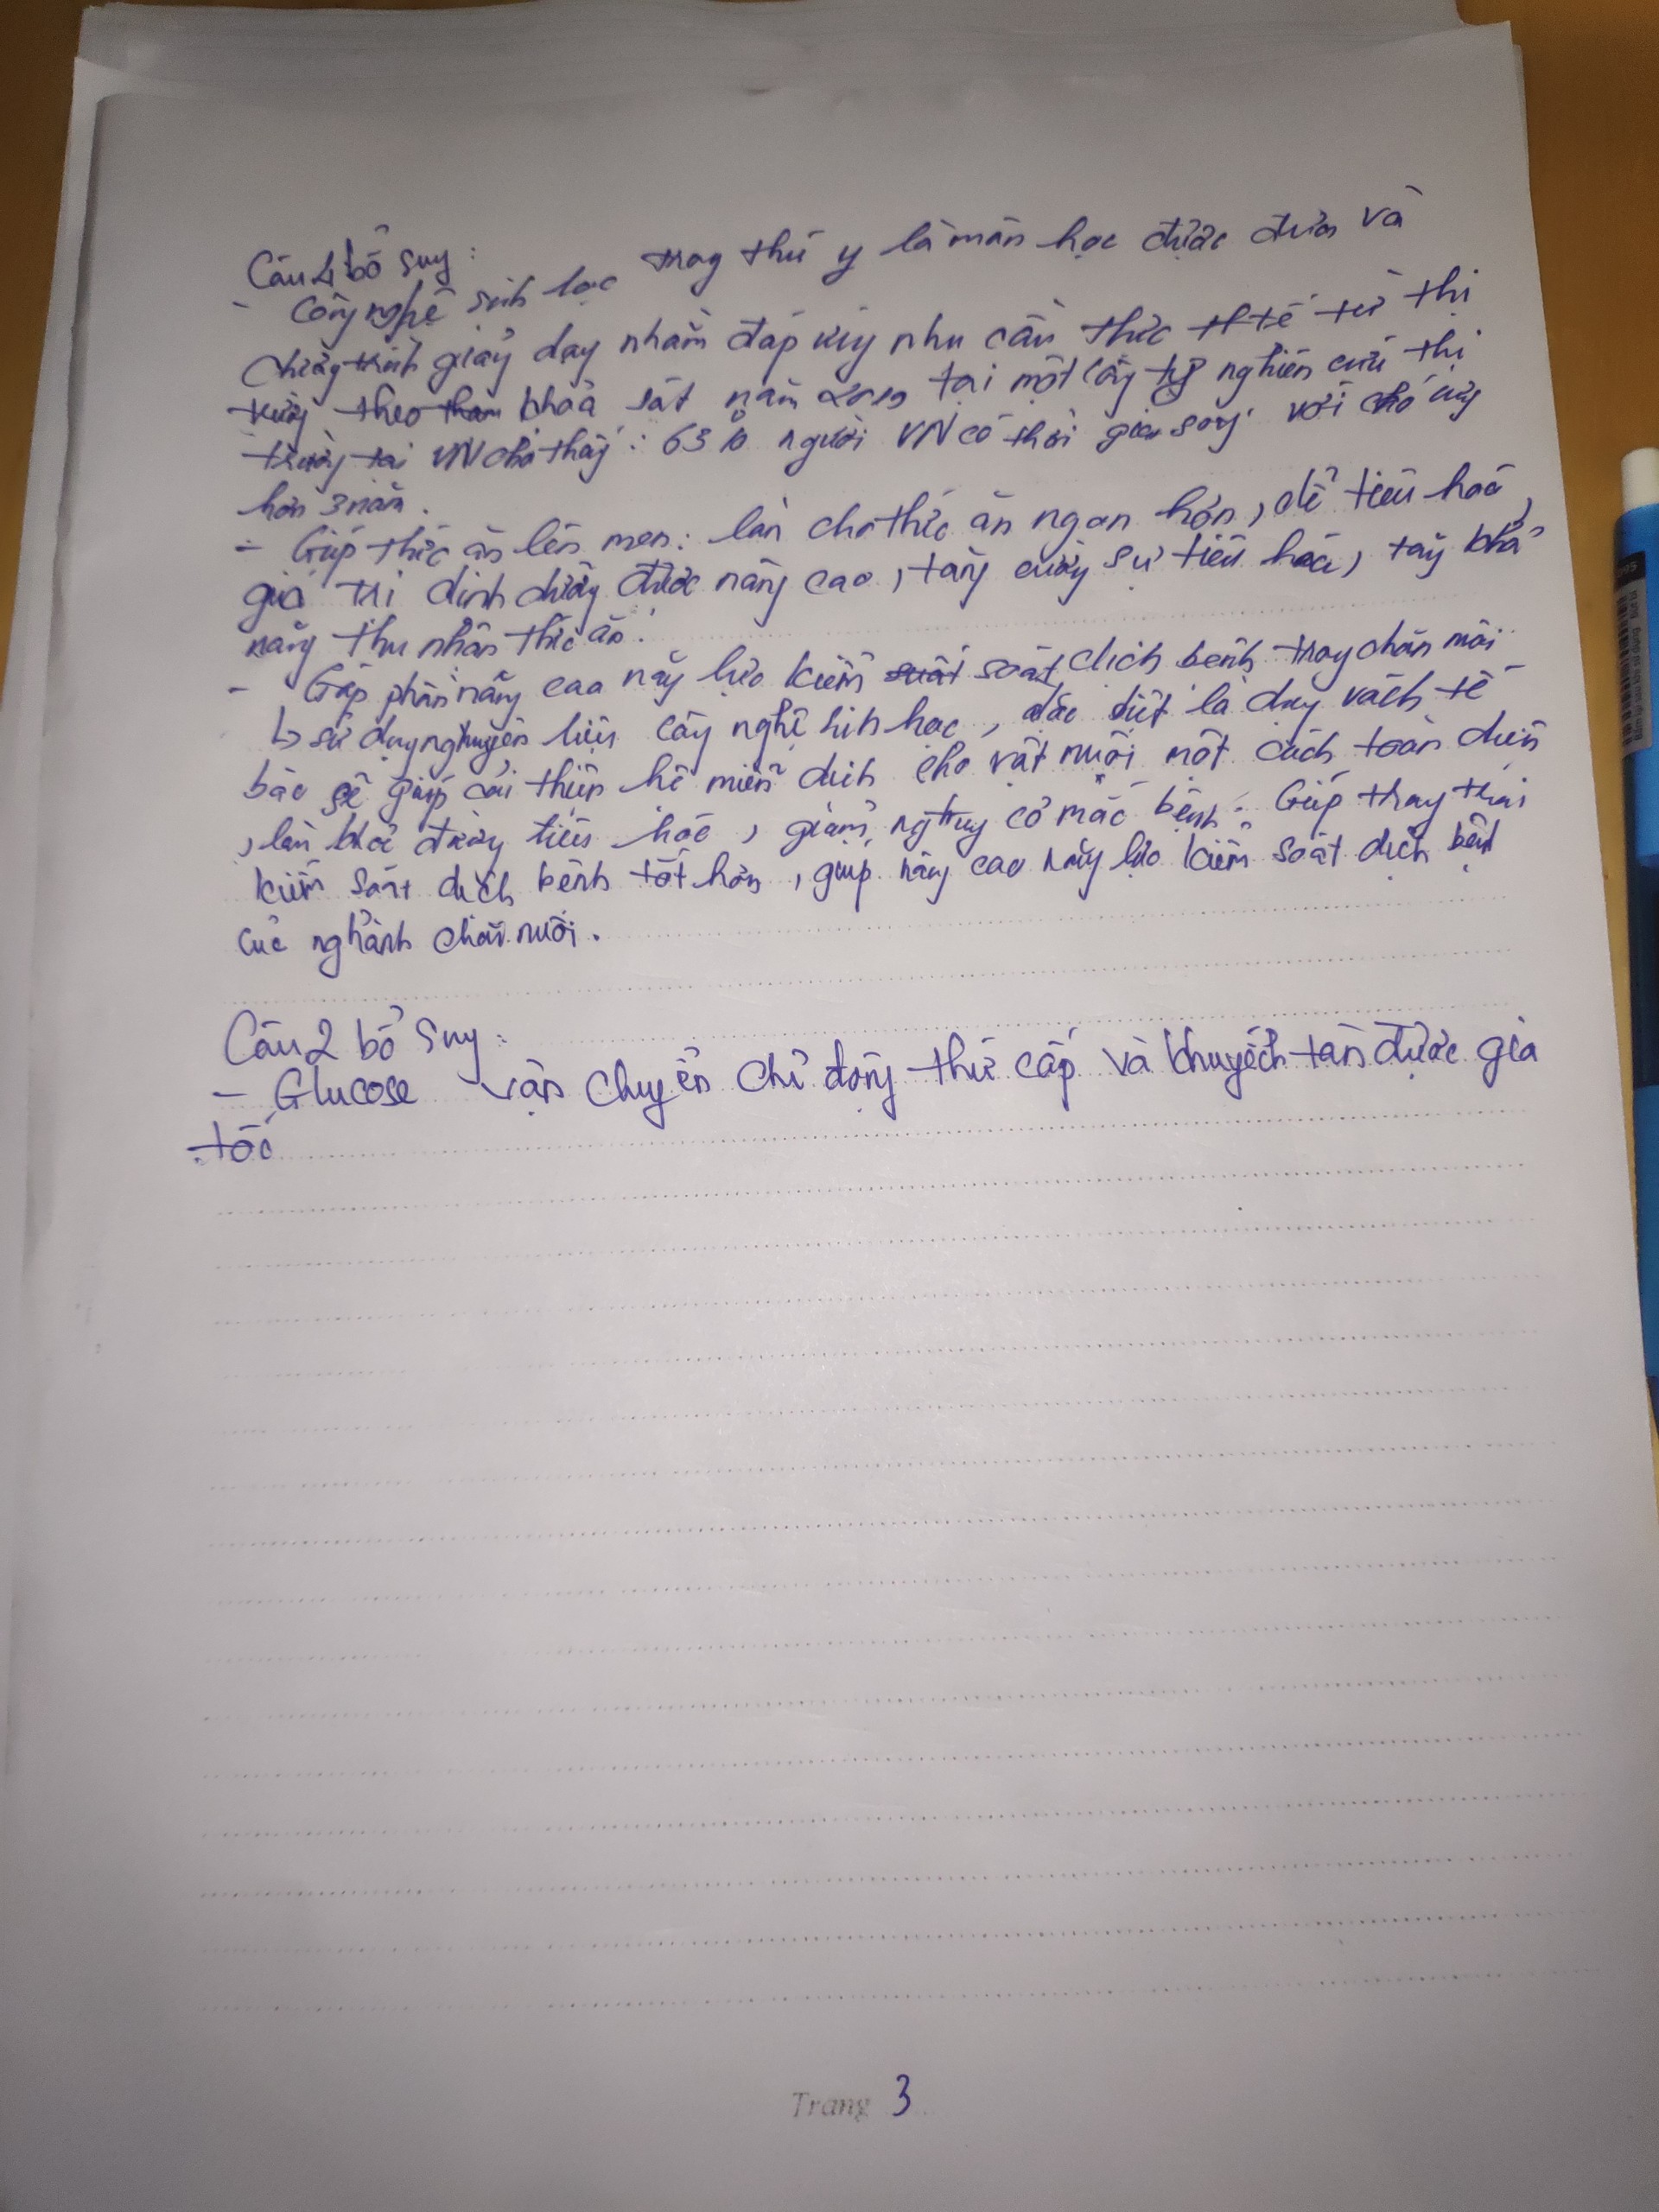 Câu 4 bổ sung :
- Công nghệ sinh học trong thú y là môn học được đưa và
chương trình giảng dạy nhằm đáp ứng nhu cầu thức tế từ thị
trường theo khảo sát năm 2019 tại một công ty nghiên cứu thị
trường tại VN cho thấy : 63% người VN có thời gian sống với chó cưng
hơn 3 năm .
- Giúp thức ăn lên men : làm cho thức ăn ngon hơn , dễ tiêu hoá ,
giá trị dinh dưỡng được nâng cao , tăng cường sự tiêu hóa , tăng khả
năng thu nhận thức ăn .
- Góp phần nâng cao năng lực kiểm soát dịch bệnh trong chăn nuôi
↳ sử dụng nguyên liệu công nghệ sinh học , đặc biệt là dùng vách tế
bào sẽ giúp cải thiện hệ miễn dịch cho vật nuôi một cách toàn diện
, làm khỏe đường tiêu hóa , giảm nguy cơ mắc bệnh . Giúp trang trại
kiểm soát dịch bệnh tốt hơn , giúp nâng cao năng lực kiểm soát dịch bệnh
của nghành chăn nuôi .
Câu 2 bổ sung :
- Glucose vận chuyển chủ động thứ cấp và khuyếch tán được gia
tốc
Trang 3